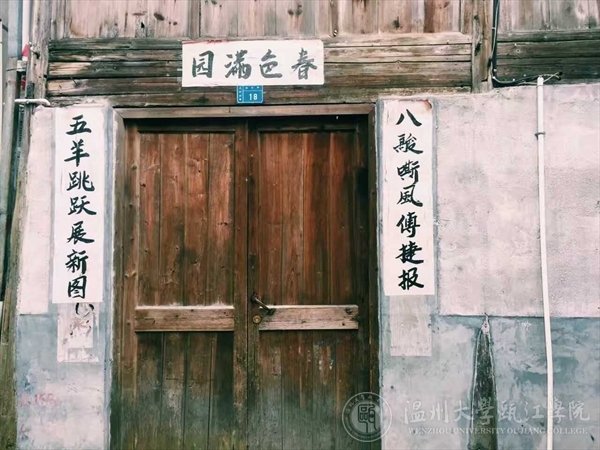 春色满园
18
八駿嘶風傳捷报
五羊跳跃展新图
温州大学甌江学院
WENZHOU UNIVERSITY OUJIANG COLLEGE